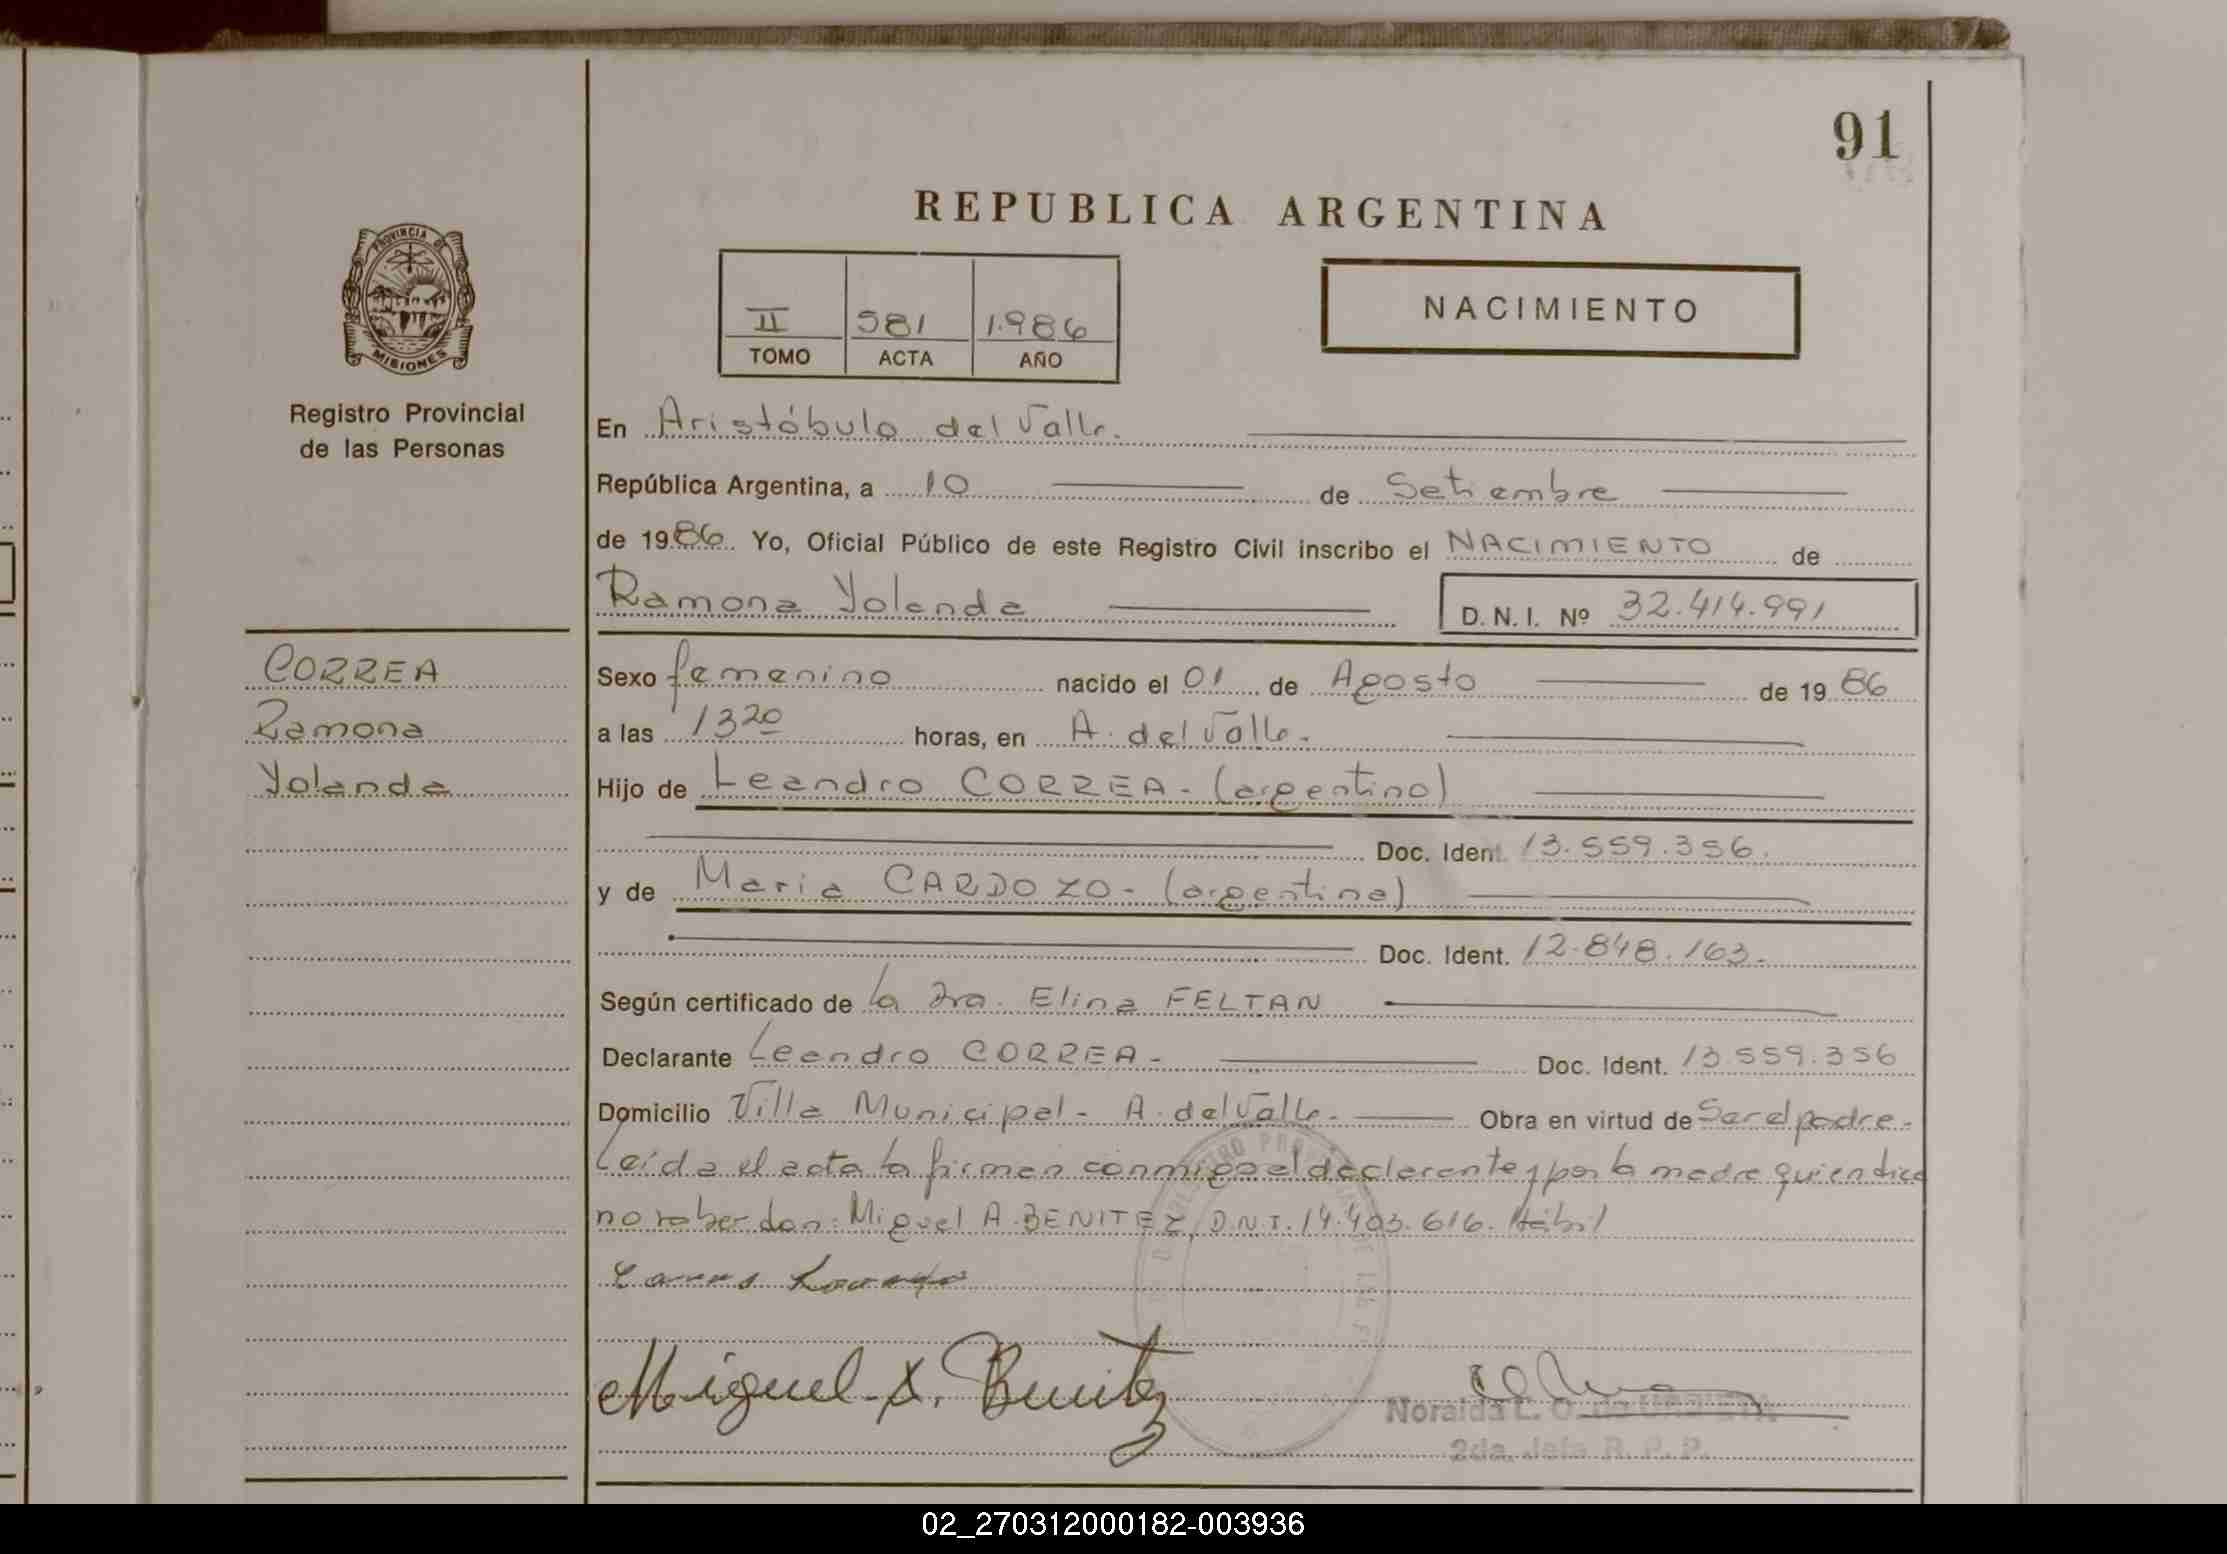 91
REPUBLICA ARGENTINA
PROVINCIA DE
MISIONES
Registro Provincial
de las Personas
II 581 1.986
TOMO ACTA AÑO
NACIMIENTO
En Aristóbulo del Valle.
República Argentina, a 10 de Setiembre
de 1986. Yo, Oficial Público de este Registro Civil inscribo el NACIMIENTO de
Ramona Yolanda D. N. I. Nº 32.414.991
CORREA
Ramona
Yolanda
Sexo femenino nacido el 01 de Agosto de 1986
a las 13 20 horas, en A. del Valle.
Hijo de Leandro CORREA - (argentino)
Doc. Ident. 13.559.356.
y de Maria CARDOZO - (argentina)
Doc. Ident. 12.848.163.
Según certificado de la Dra. Elina FELTAN
Declarante Leandro CORREA - Doc. Ident. 13.559.356
Domicilio Villa Municipal - A. del Valle. Obra en virtud de Ser el padre.
Leída el acta la firman conmigo el declarante y por la madre quien dice
no saber don: Miguel A. BENITEZ, D.N.I. 14.403.616. Hábil
Miguel A. Benitez
Noraida L. O. de URBIETA
2da. Jefa R. P. P.
02_270312000182-003936